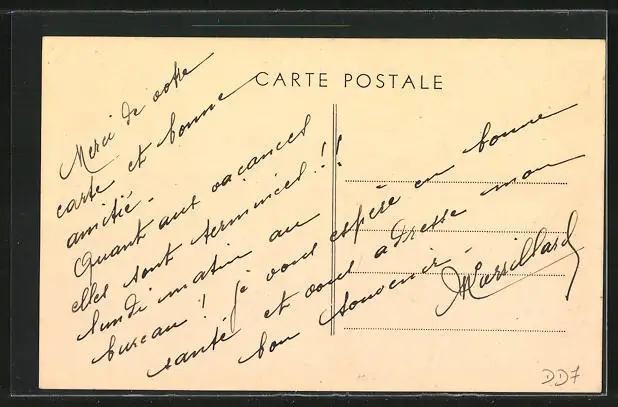 CARTE POSTALE
Merci de votre
carte et bonne
amitié.
Quant aux vacances
elles sont terminées!!
lundi matin au
bureau! Je vous espère en bonne
santé et vous adresse mon
bon souvenir.
DD7